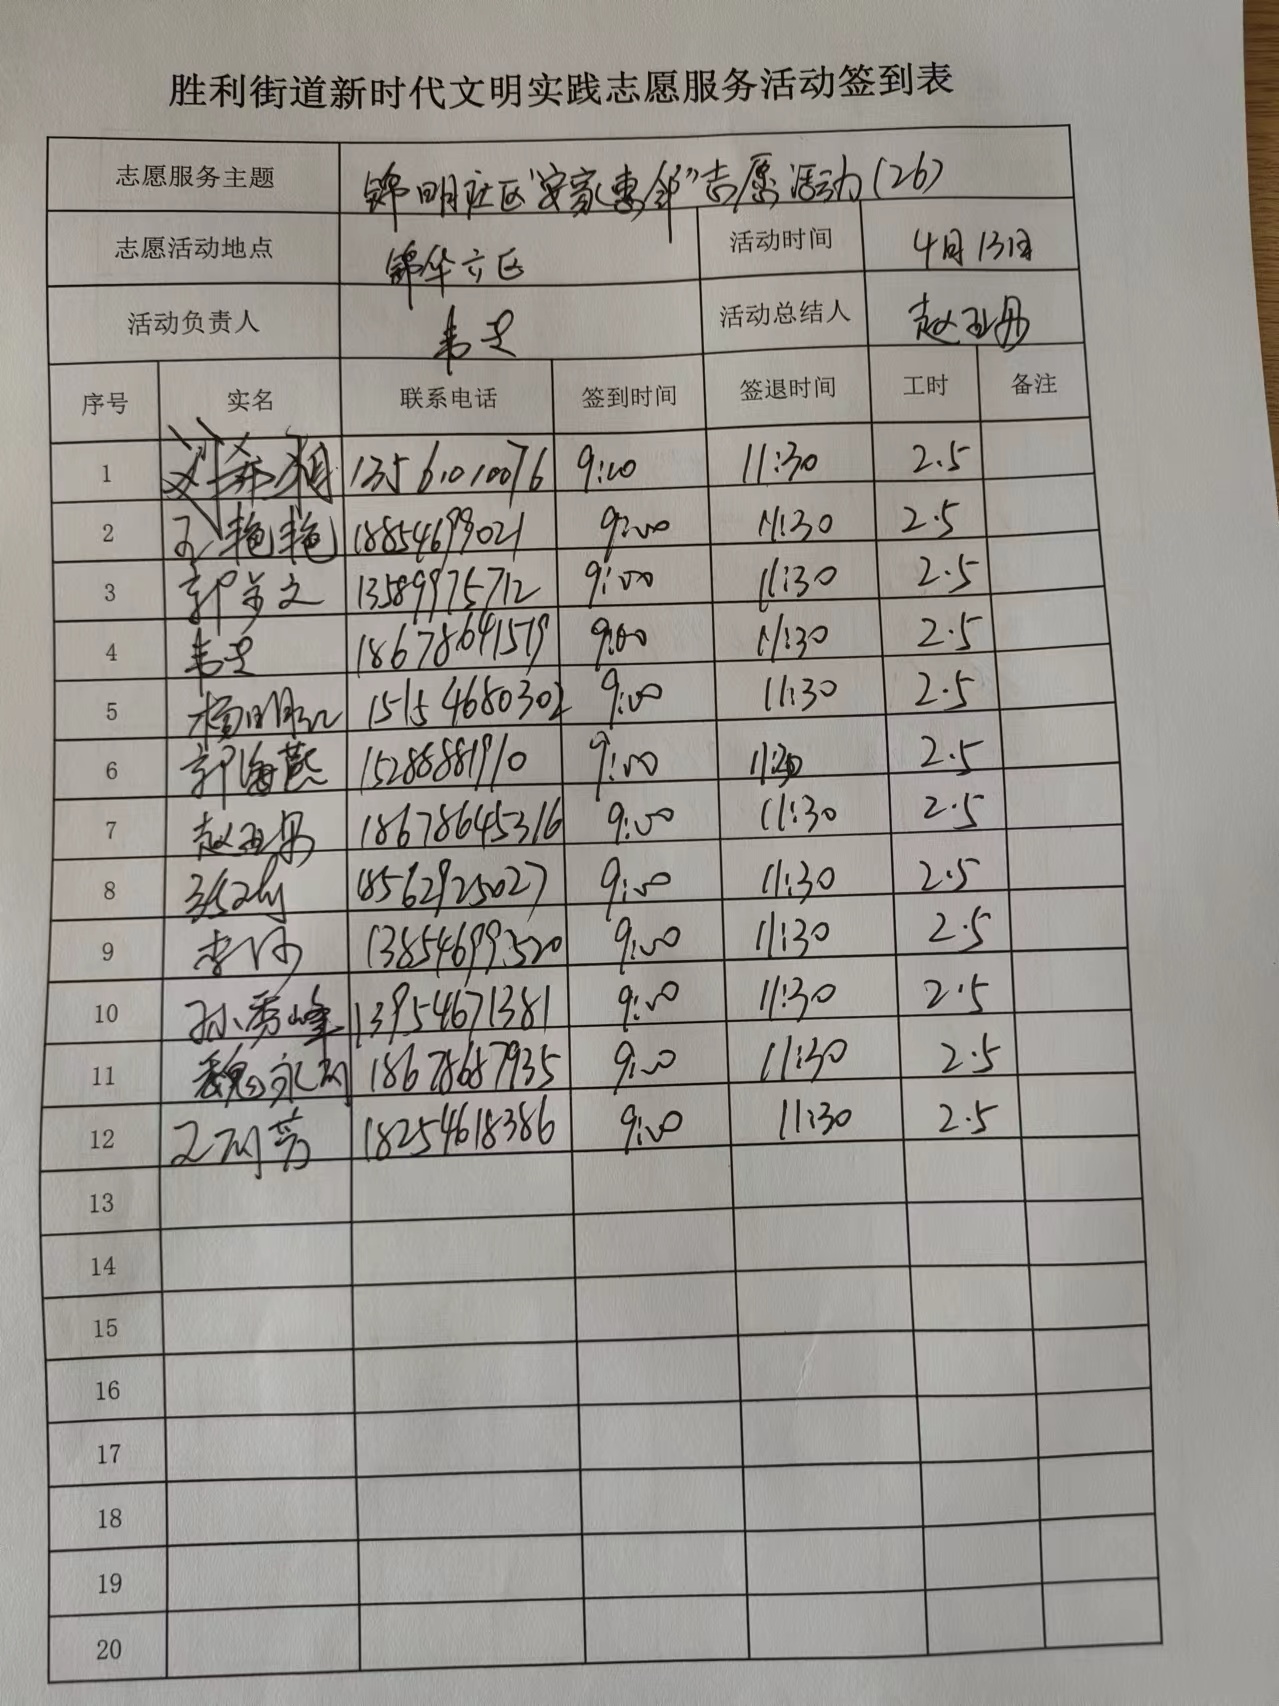 胜利街道新时代文明实践志愿服务活动签到表
志愿服务主题 锦明社区“安家惠邻”志愿活动(26)
志愿活动地点 锦华六区 活动时间 4月13日
活动负责人 韦 活动总结人 赵丑丹
序号 实名 联系电话 签到时间 签退时间 工时 备注
1 13561010076 9:00 11:30 2.5
2 王艳艳 18854699021 9:00 11:30 2.5
3 郭文 13589975712 9:00 11:30 2.5
4 韦 18678641579 9:00 11:30 2.5
5 杨明 15154680302 9:00 11:30 2.5
6 郭海燕 15288881910 9:00 11:30 2.5
7 赵丑丹 18678645316 9:00 11:30 2.5
8 18562925027 9:00 11:30 2.5
9 李 13854699520 9:00 11:30 2.5
10 孙秀峰 13954671381 9:00 11:30 2.5
11 魏永 18678687935 9:00 11:30 2.5
12 王芳 18254618386 9:00 11:30 2.5
13
14
15
16
17
18
19
20